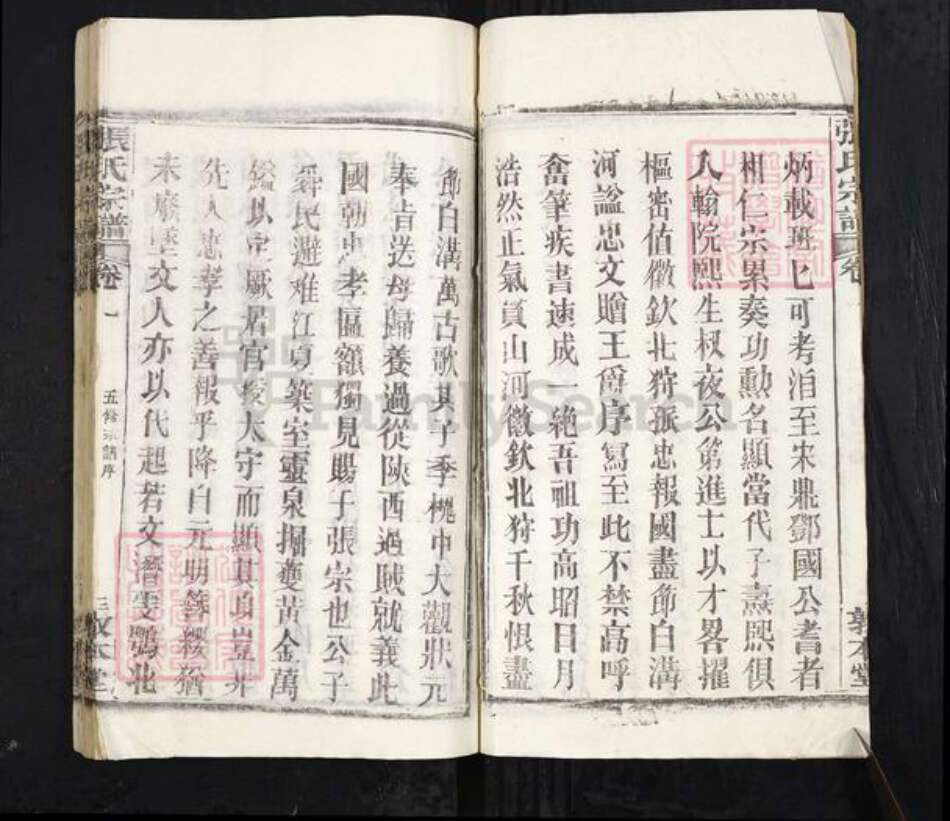 張氏宗譜 卷
炳載班匕可考洎至宋鼎鄧國公耆者
相仁宗累奏功勳名顯當代子燾熙俱
入翰院熙生叔夜公第進士以才畧擢
樞密值徽欽北狩孤忠報國盡節白溝
河謚忠文贈王爵序寫至此不禁高呼
奮筆疾書速成一絕吾祖功高昭日月
浩然正氣貫山河徽欽北狩千秋恨盡
敦本堂
節白溝萬古歌其子季槐中大觀狀元
奉旨送母歸養過從陝西過賊就義此
國朝忠孝匾額獨見賜子張宗也公子
舜民避难江夏築室靈泉掘甕黃金萬
鎰以定厥居官授太守而顯其身豈非
先人忠孝之善報乎降自元明簪纓猶
未廢墜文人亦以代起若文潛雯鵬北
張氏宗譜 卷一
五修宗譜序
三
敦本堂
FamilySearch